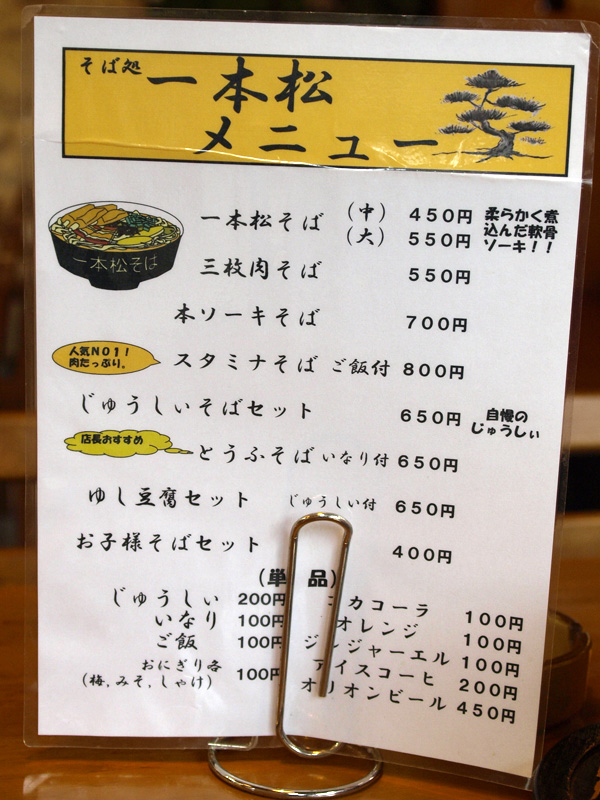 そば処
一本松
メニュー
一本松そば
一本松そば (中) 450円 柔らかく煮
(大) 550円 込んだ軟骨
ソーキ！！
三枚肉そば 550円
本ソーキそば 700円
人気NO1！
肉たっぷり。
スタミナそば ご飯付 800円
じゅうしぃそばセット 650円 自慢の
じゅうしぃ
店長おすすめ
とうふそば いなり付 650円
ゆし豆腐セット じゅうしい付 650円
お子様そばセット 400円
(単 品)
じゅうしぃ 200円
いなり 100円
ご飯 100円
おにぎり各 100円
(梅,みそ,しゃけ)
カコーラ 100円
オレンジ 100円
ジンジャーエル 100円
アイスコーヒ 200円
オリオンビール 450円